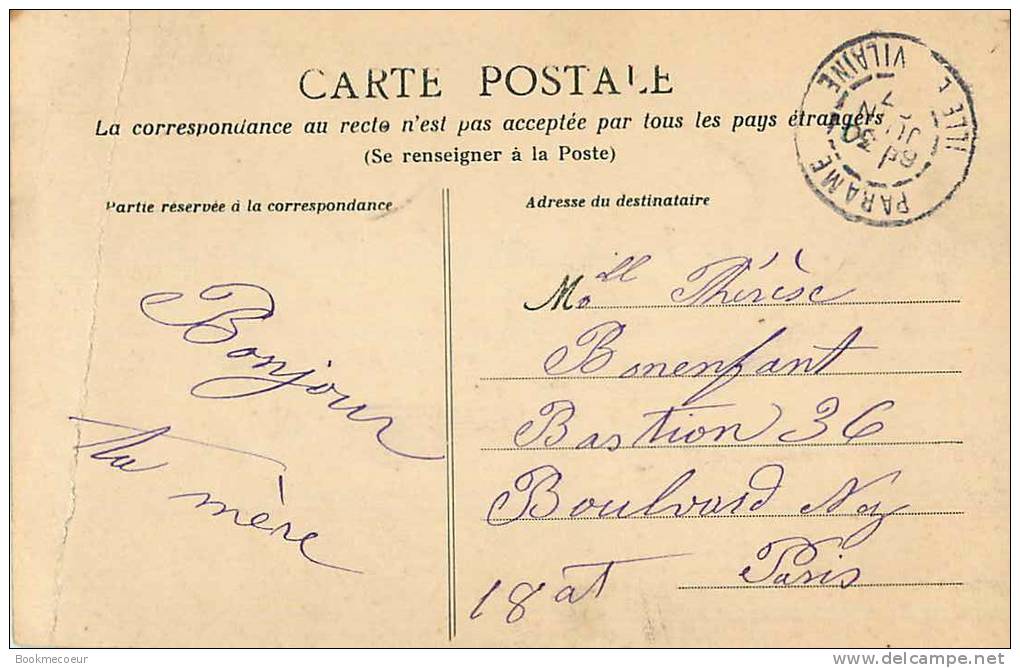 CARTE POSTALE
La correspondance au recto n'est pas acceptée par tous les pays étrangers
(Se renseigner à la Poste)
Partie réservée à la correspondance
Adresse du destinataire
Bonjour
Ta mère
Mell Thérèse
Bonenfant
Bastion 36
Boulvard Ney
Paris
18 at
PARAME
ILLE ET VILAINE
JUIN
Bookmecoeur
delcampe.net